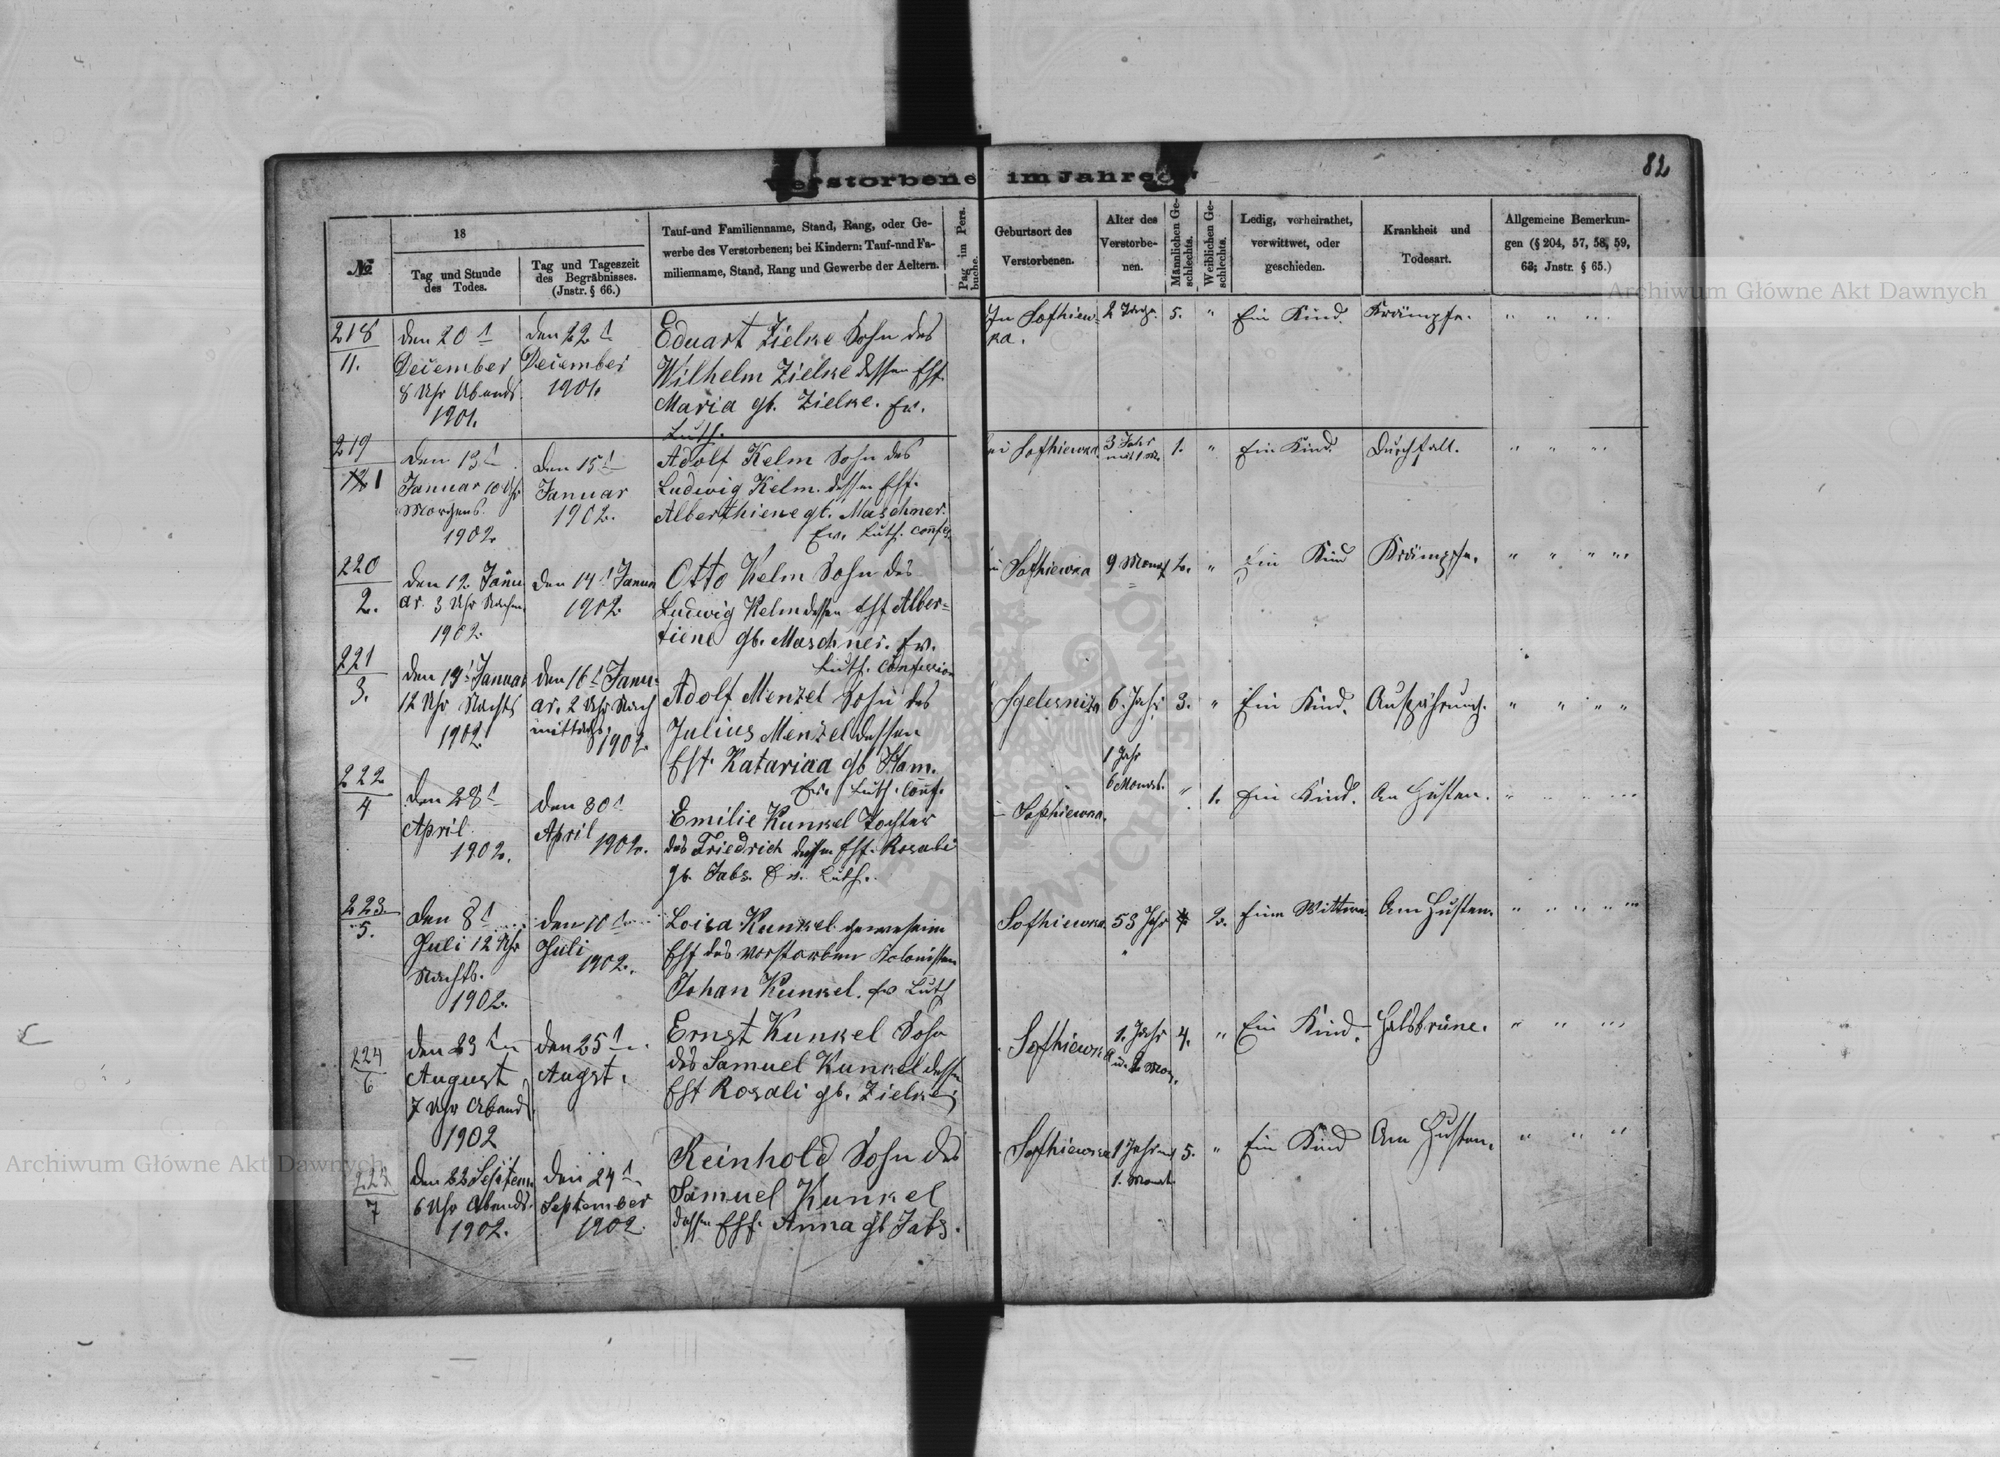 82
Verstorbene im Jahre
№
18
Tag und Stunde
des Todes.
Tag und Tageszeit
des Begräbnisses.
(Jnstr. § 66.)
Tauf-und Familienname, Stand, Rang, oder Ge-
werbe des Verstorbenen; bei Kindern: Tauf-und Fa-
milienname, Stand, Rang und Gewerbe der Aeltern.
Pag im Pers.
buche.
Geburtsort des
Verstorbenen.
Alter des
Verstorbe-
nen.
Männlichen Ge-
schlechts.
Weiblichen Ge-
schlechts.
Ledig, verheirathet,
verwittwet, oder
geschieden.
Krankheit und
Todesart.
Allgemeine Bemerkun-
gen (§ 204, 57, 58, 59,
63; Jnstr. § 65.)
218
11.
den 20
December
8 Uhr Abends
1901.
den 22
December
1901
Eduart Zielke Sohn des
Wilhelm Zielke dessen Ehf.
Maria gb. Zielke. Ev.
Luth.
In Sofhiew-
ka.
2 Tage.
5.
"
Ein Kind.
Krämpfe.
219
1
den 13
Januar 10 Uhr
Morgens.
1902
den 15
Januar
1902.
Adolf Kelm Sohn des
Ludwig Kelm. dessen Ehf.
Alberthiene gb. Maschner.
Ev. Luth. Confes.
Sofhiewka.
3 Jahr
1.
"
Ein Kind.
Durchfall.
220
2.
den 12. Janu
ar. 3 Uhr Nachm.
1902.
den 14 Janua
1902
Otto Kelm Sohn des
Ludwig Kelm dessen Ehf Alber=
tiene gb. Maschner. Ev.
Luth. Confession
Sofhiewka
9 Monat
2.
"
Ein Kind
Krämpfe.
221
3.
den 14 Januar
12 Uhr Nachts
1902
den 16 Janu-
ar. 2 Uhr Nach
mittags
1902
Adolf Menzel Sohn des
Julius Menzel dessen
Ehf. Katariaa gb Klam.
Ev. Luth. Conf.
6. Jahr
3.
"
Ein Kind.
222
4
den 28
April
1902.
den 30
April
1902.
Emilie Kunkel Tochter
des Friedrich dessen Ehf. Rosali
gb. Jabs. Ev. Luth.
Sophiewka.
1 Jahr
6 Monat.
"
1.
Ein Kind.
An Husten.
223
5.
den 8
Juli 12 Uhr
Nachts.
1902.
den 10
Juli
1902.
Loisa Kunkel gewesein
Ehf des verstorben Kolonisten
Johan Kunkel. Ev Luth
Sofhiewka
53 Jahr
2.
Eine Wittwe
Am Husten.
224
6
den 23
August
7 Uhr Abends.
1902
den 25
Augst.
Ernst Kunkel Sohn
des Samuel Kunkel dessen
Ehf Rosali gb. Zielke
Sofhiewka
1. Jahr
4.
"
Ein Kind.
Halsbrüne.
225
7
den 22 Septem
6 Uhr Abends.
1902.
den 24
September
1902.
Reinhold Sohn des
Samuel Kunkel
dessen Ehf. Anna gb Jabs.
Sofhiewka
1 Jahr
1. Monat.
5.
"
Ein Kind
Am Husten.
Archiwum Główne Akt Dawnych
Archiwum Główne Akt Dawnych